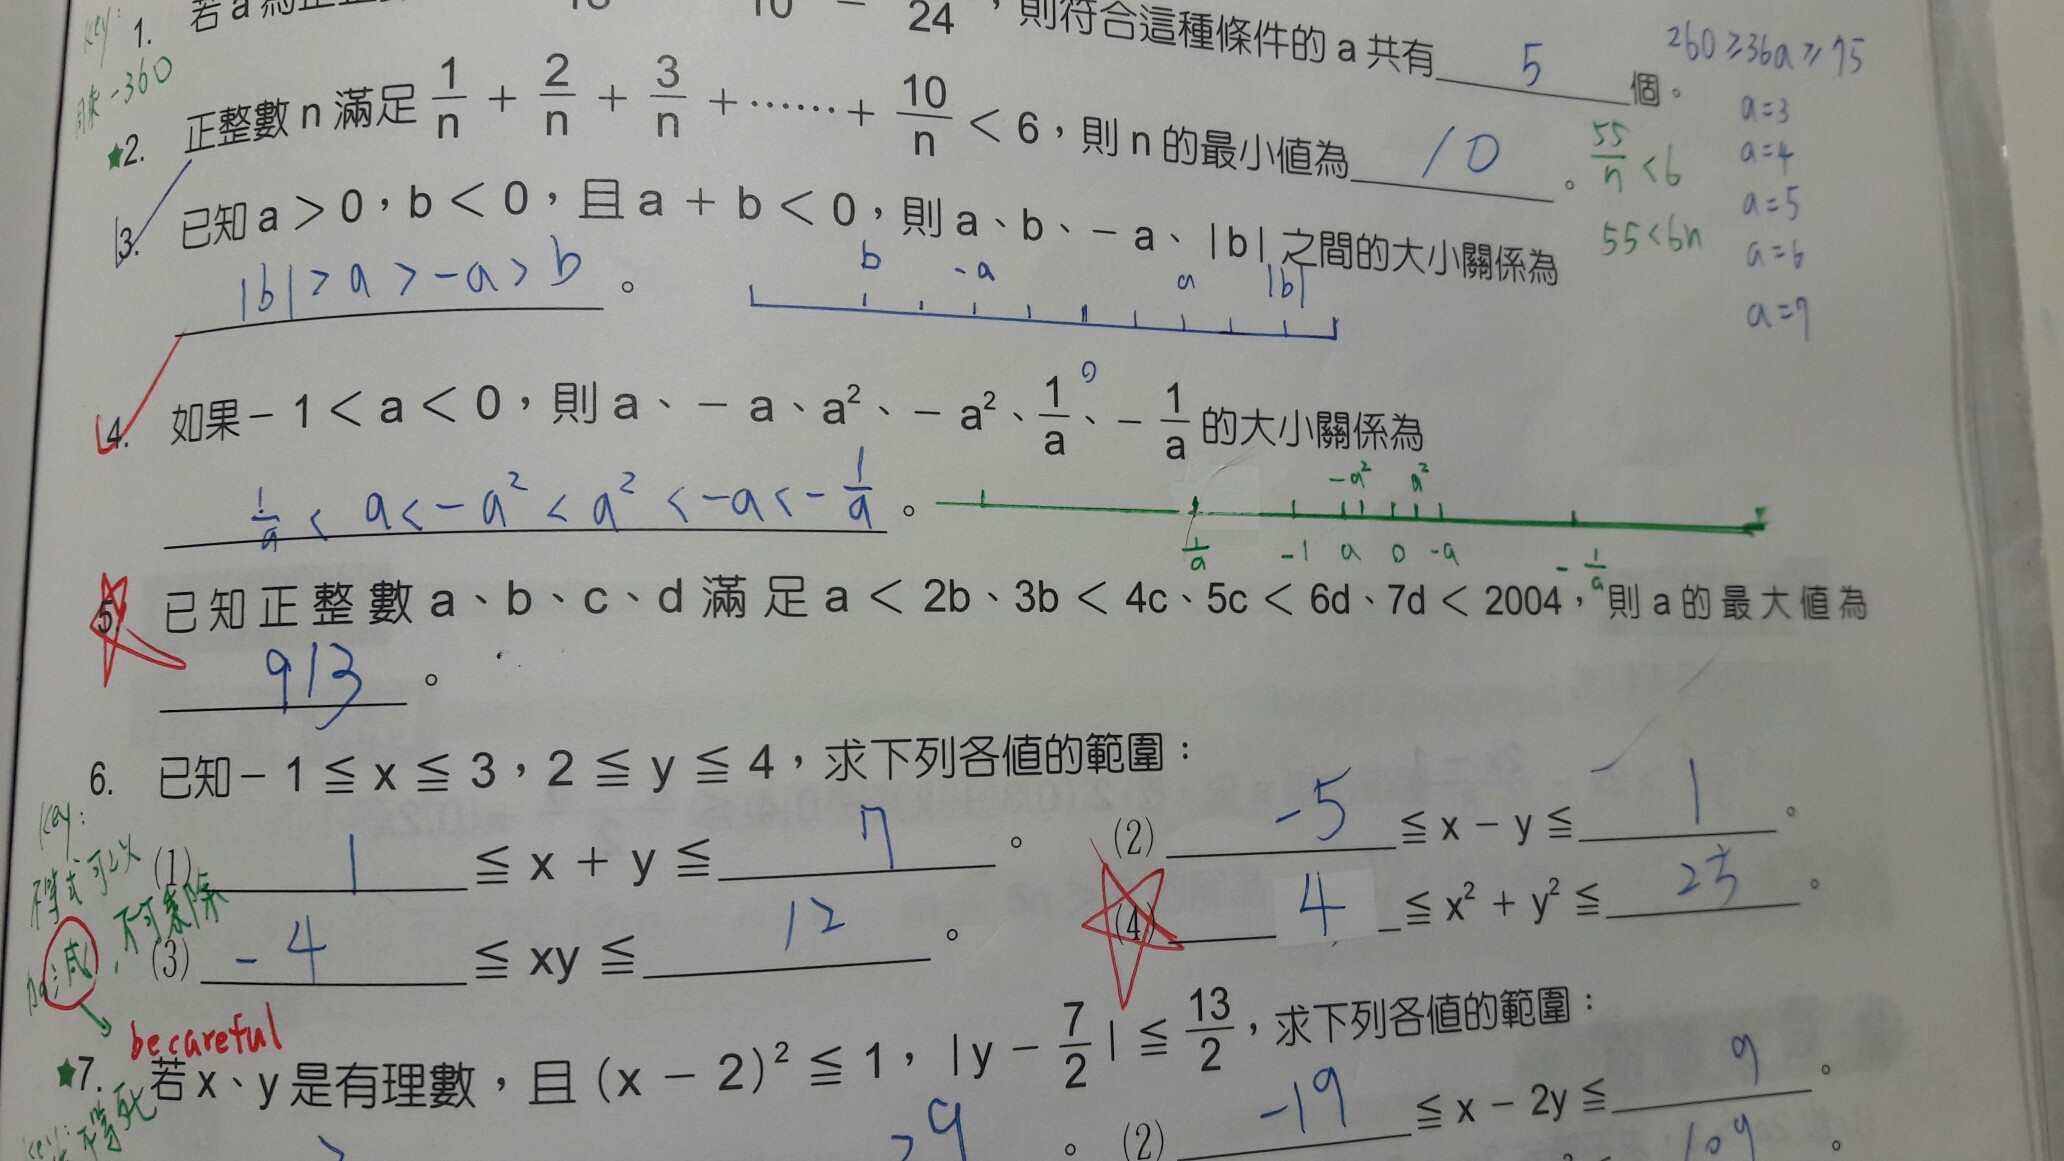 key: 1. 若 a 為 10 - 24 ,則符合這種條件的 a 共有 5 個。
260≥36a≥75
a=3
a=4
a=5
a=6
a=7
同乘 -360
★2. 正整數 n 滿足 1/n + 2/n + 3/n + …… + 10/n < 6,則 n 的最小值為 10 。
55/n <6
55<6n
3. 已知 a > 0,b < 0,且 a + b < 0,則 a、b、- a、|b| 之間的大小關係為
|b| > a > -a > b 。
b -a a |b|
0
4. 如果 - 1 < a < 0,則 a、- a、a²、- a²、1/a、- 1/a 的大小關係為
1/a < a < -a² < a² < -a < - 1/a 。
-a² a²
1/a -1 a 0 -a - 1/a
5. 已知正整數 a、b、c、d 滿足 a < 2b、3b < 4c、5c < 6d、7d < 2004,則 a 的最大值為
913 。
6. 已知 - 1 ≦ x ≦ 3,2 ≦ y ≦ 4,求下列各值的範圍:
key:
不等式可以
加減,不可乘除
(1) 1 ≦ x + y ≦ 7 。 (2) -5 ≦ x - y ≦ 1 。
(3) -4 ≦ xy ≦ 12 。 (4) 4 ≦ x² + y² ≦ 25 。
be careful
★7. 若 x、y 是有理數,且 (x - 2)² ≦ 1,|y - 7/2| ≦ 13/2,求下列各值的範圍:
29 。 (2) -19 ≦ x - 2y ≦ 9 。
109 。